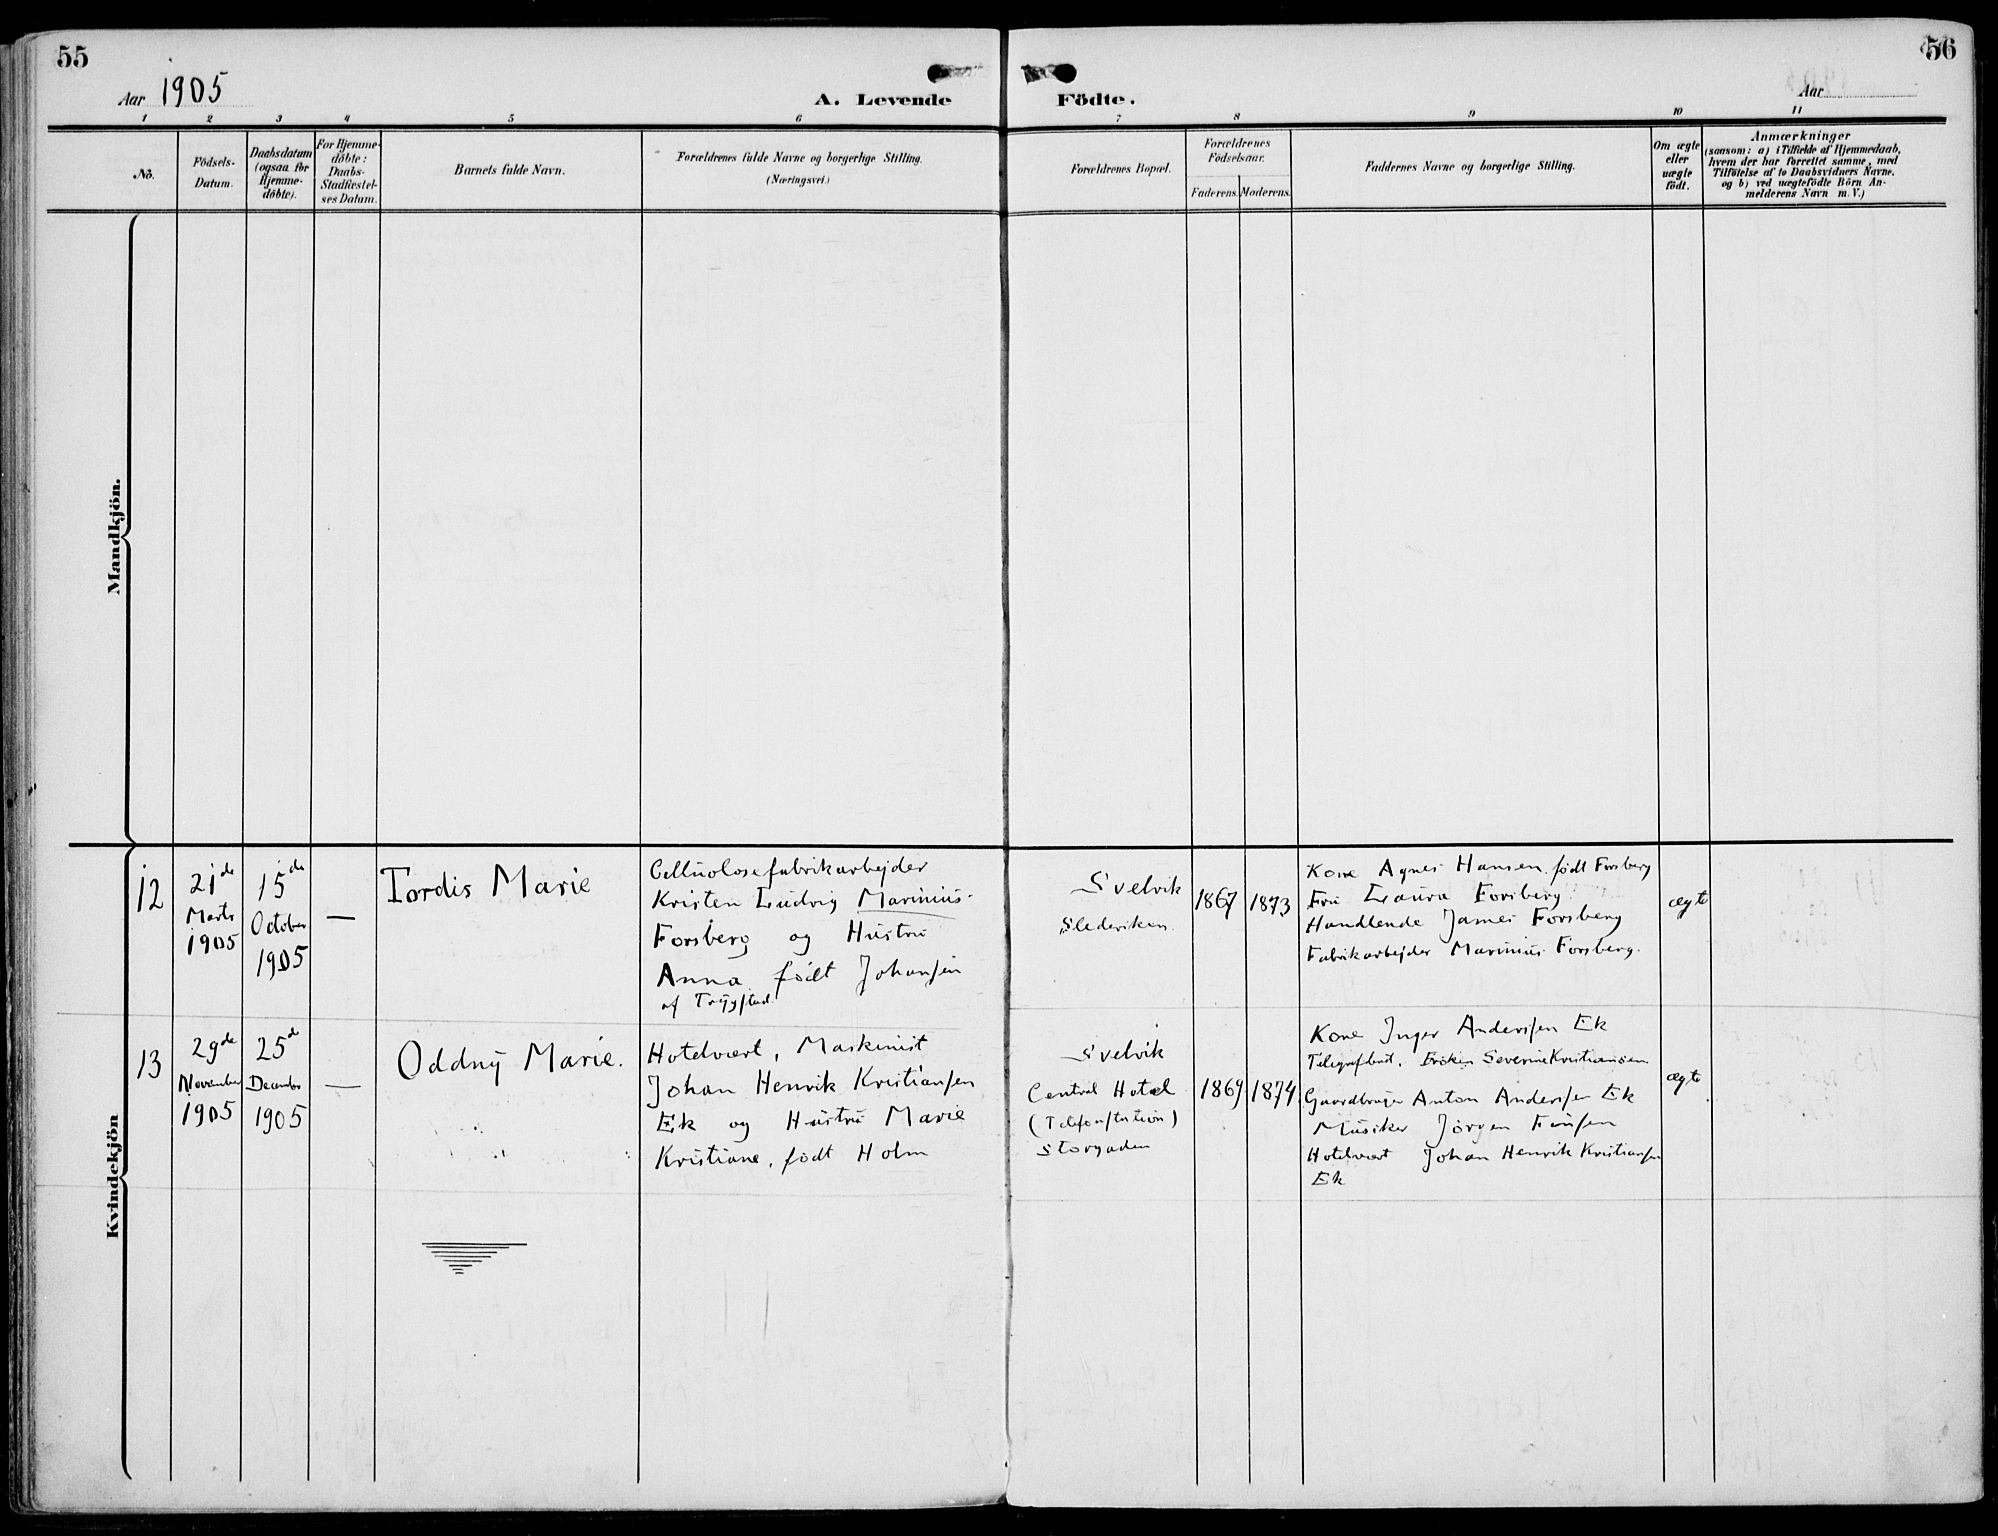 55
56
Aar 1905
A. Levende Födte.
Aar
1 2 3 4 5 6 7 8 9 10 11
No.
Födsels-
Datum.
Daabsdatum
(ogsaa for
Hjemme-
döbte).
For Hjemme-
döbte:
Daabs-
Stadfestel-
ses Datum.
Barnets fulde Navn.
Forældrenes fulde Navne og borgerlige Stilling.
(Næringsvei.)
Forældrenes Bopæl.
Forældrenes
Födselsaar.
Faderens.
Moderens.
Faddernes Navne og borgerlige Stilling.
Om ægte
eller
uægte
födt.
Anmærkninger
(saasom: a) i Tilfælde af Hjemmedaab,
hvem der har forrettet samme, med
Tilföielse af to Daabsvidners Navne.
og b) ved uægtefödte Börn An-
melderens Navn m. V.)
Mandkjön.
Kvindekjön
12
21de
Marts
1905
15de
October
1905
—
Tordis Marie
Celluolosefabrikarbejder
Kristen Ludvig Marinius
Forsberg og Hustru
Anna født Johansen
af Trygstad
Svelvik
1867
1873
Kone Agnes Hansen født Forsberg
Fru Laura Forsberg
Handlende James Forsberg
Fabrikarbejder Marinius Forsberg.
ægte
13
29de
November
1905
25de
December
1905
—
Oddny Marie.
Hotelvært, Maskinist
Johan Henrik Kristiansen
Ek og Hustru Marie
Kristiane, født Holm
Svelvik
Central Hotel
(Telefonstation)
Storgaden
1869
1874
Kone Inger Andersen Ek
Severine Kristiansen
Gaardbruger Anton Andersen Ek
Musiker Jörgen
Hotelvært Johan Henrik Kristiansen
Ek
ægte